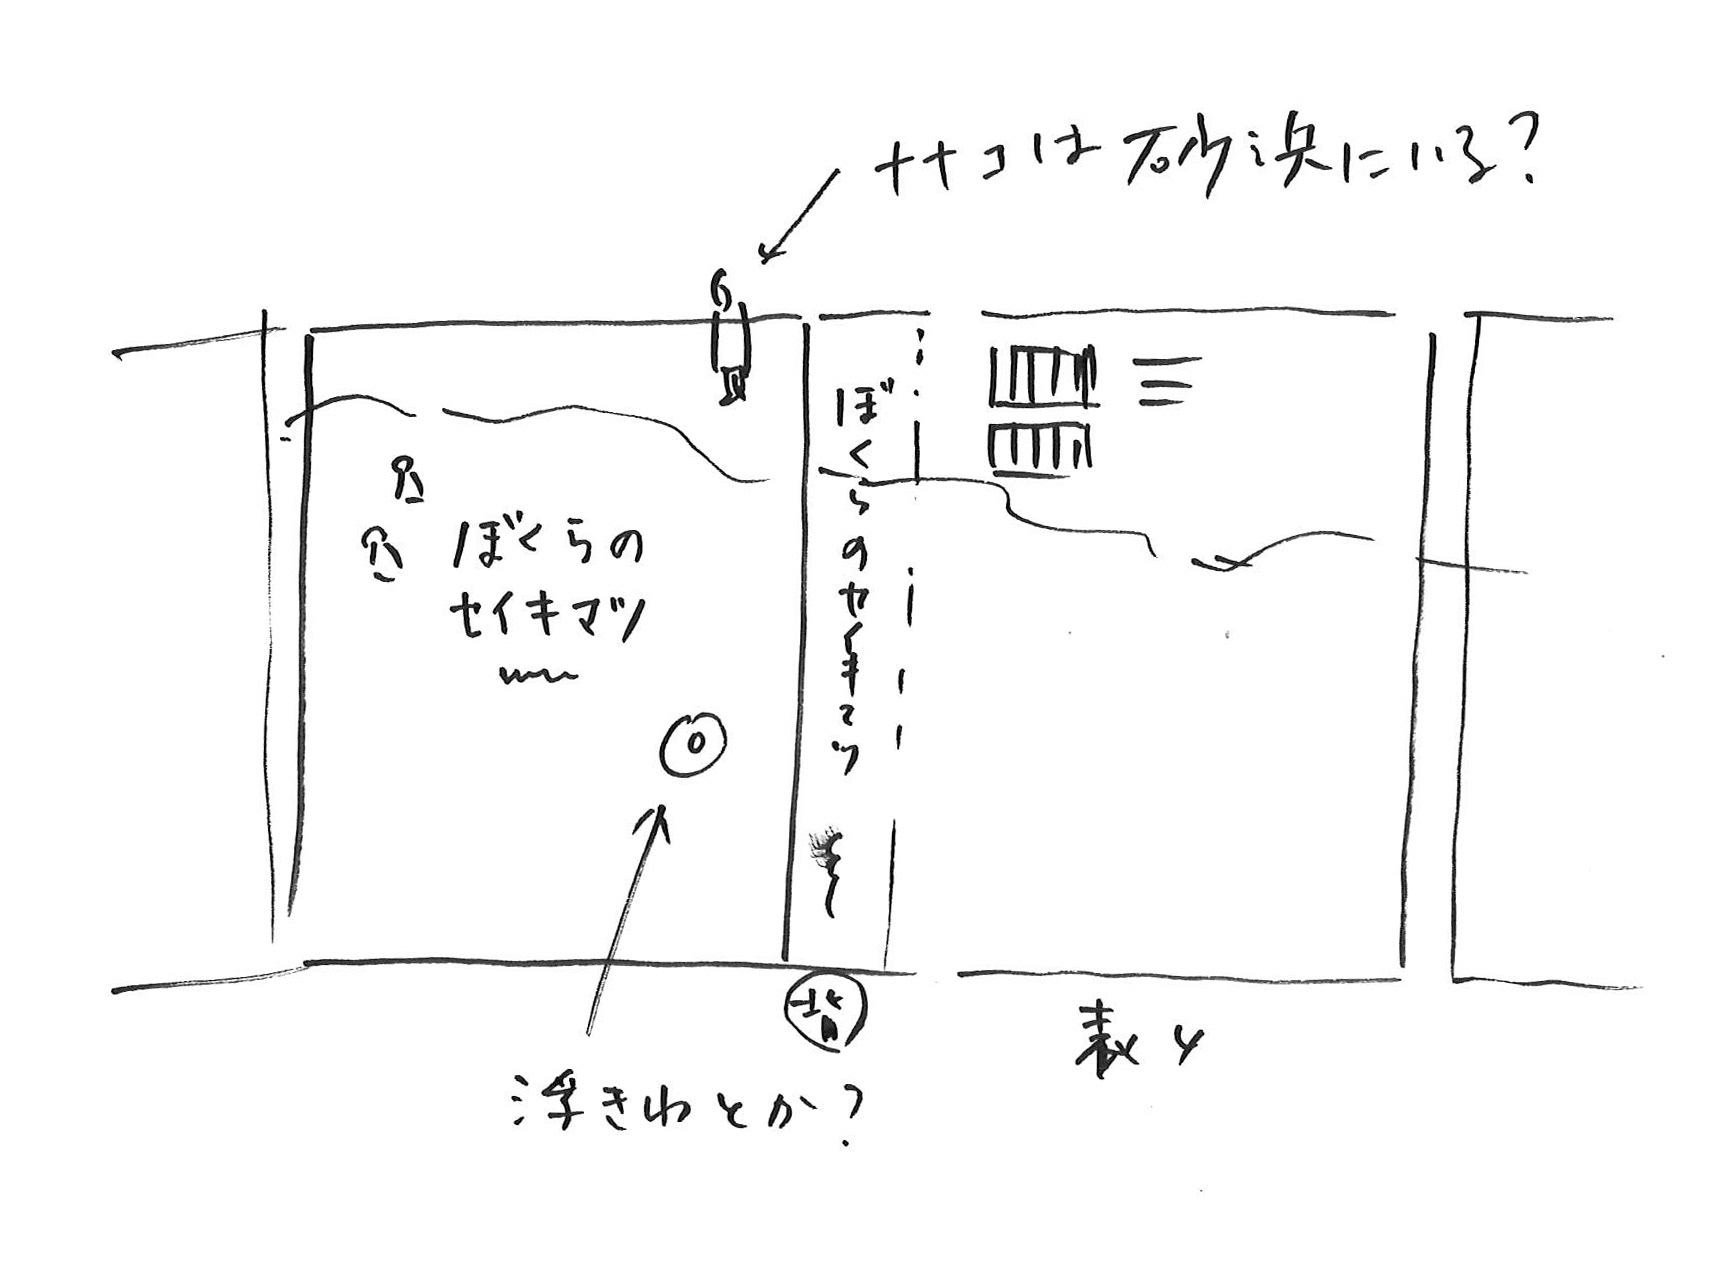 ナナコは砂浜にいる?
ぼくらの
セイキマツ
ぼくらのセイキマツ
背
表4
浮きわとか?